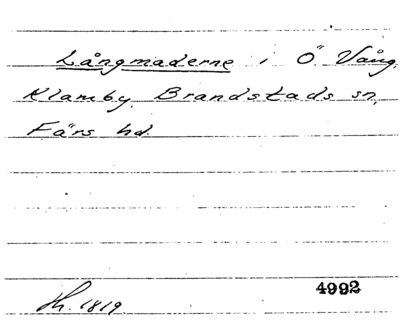 Långmaderne i Ö. Vång,
Klamby, Brandstads sn,
Färs hd.
4992
Th. 1819